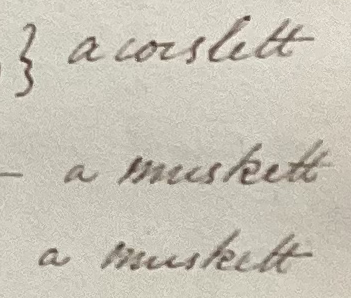 } a corslett
– a muskett
a muskett